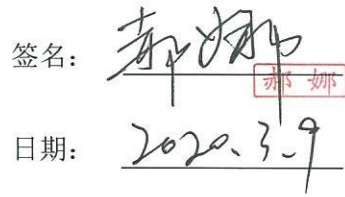 签名：郝娜
郝娜
日期：2020.3.9